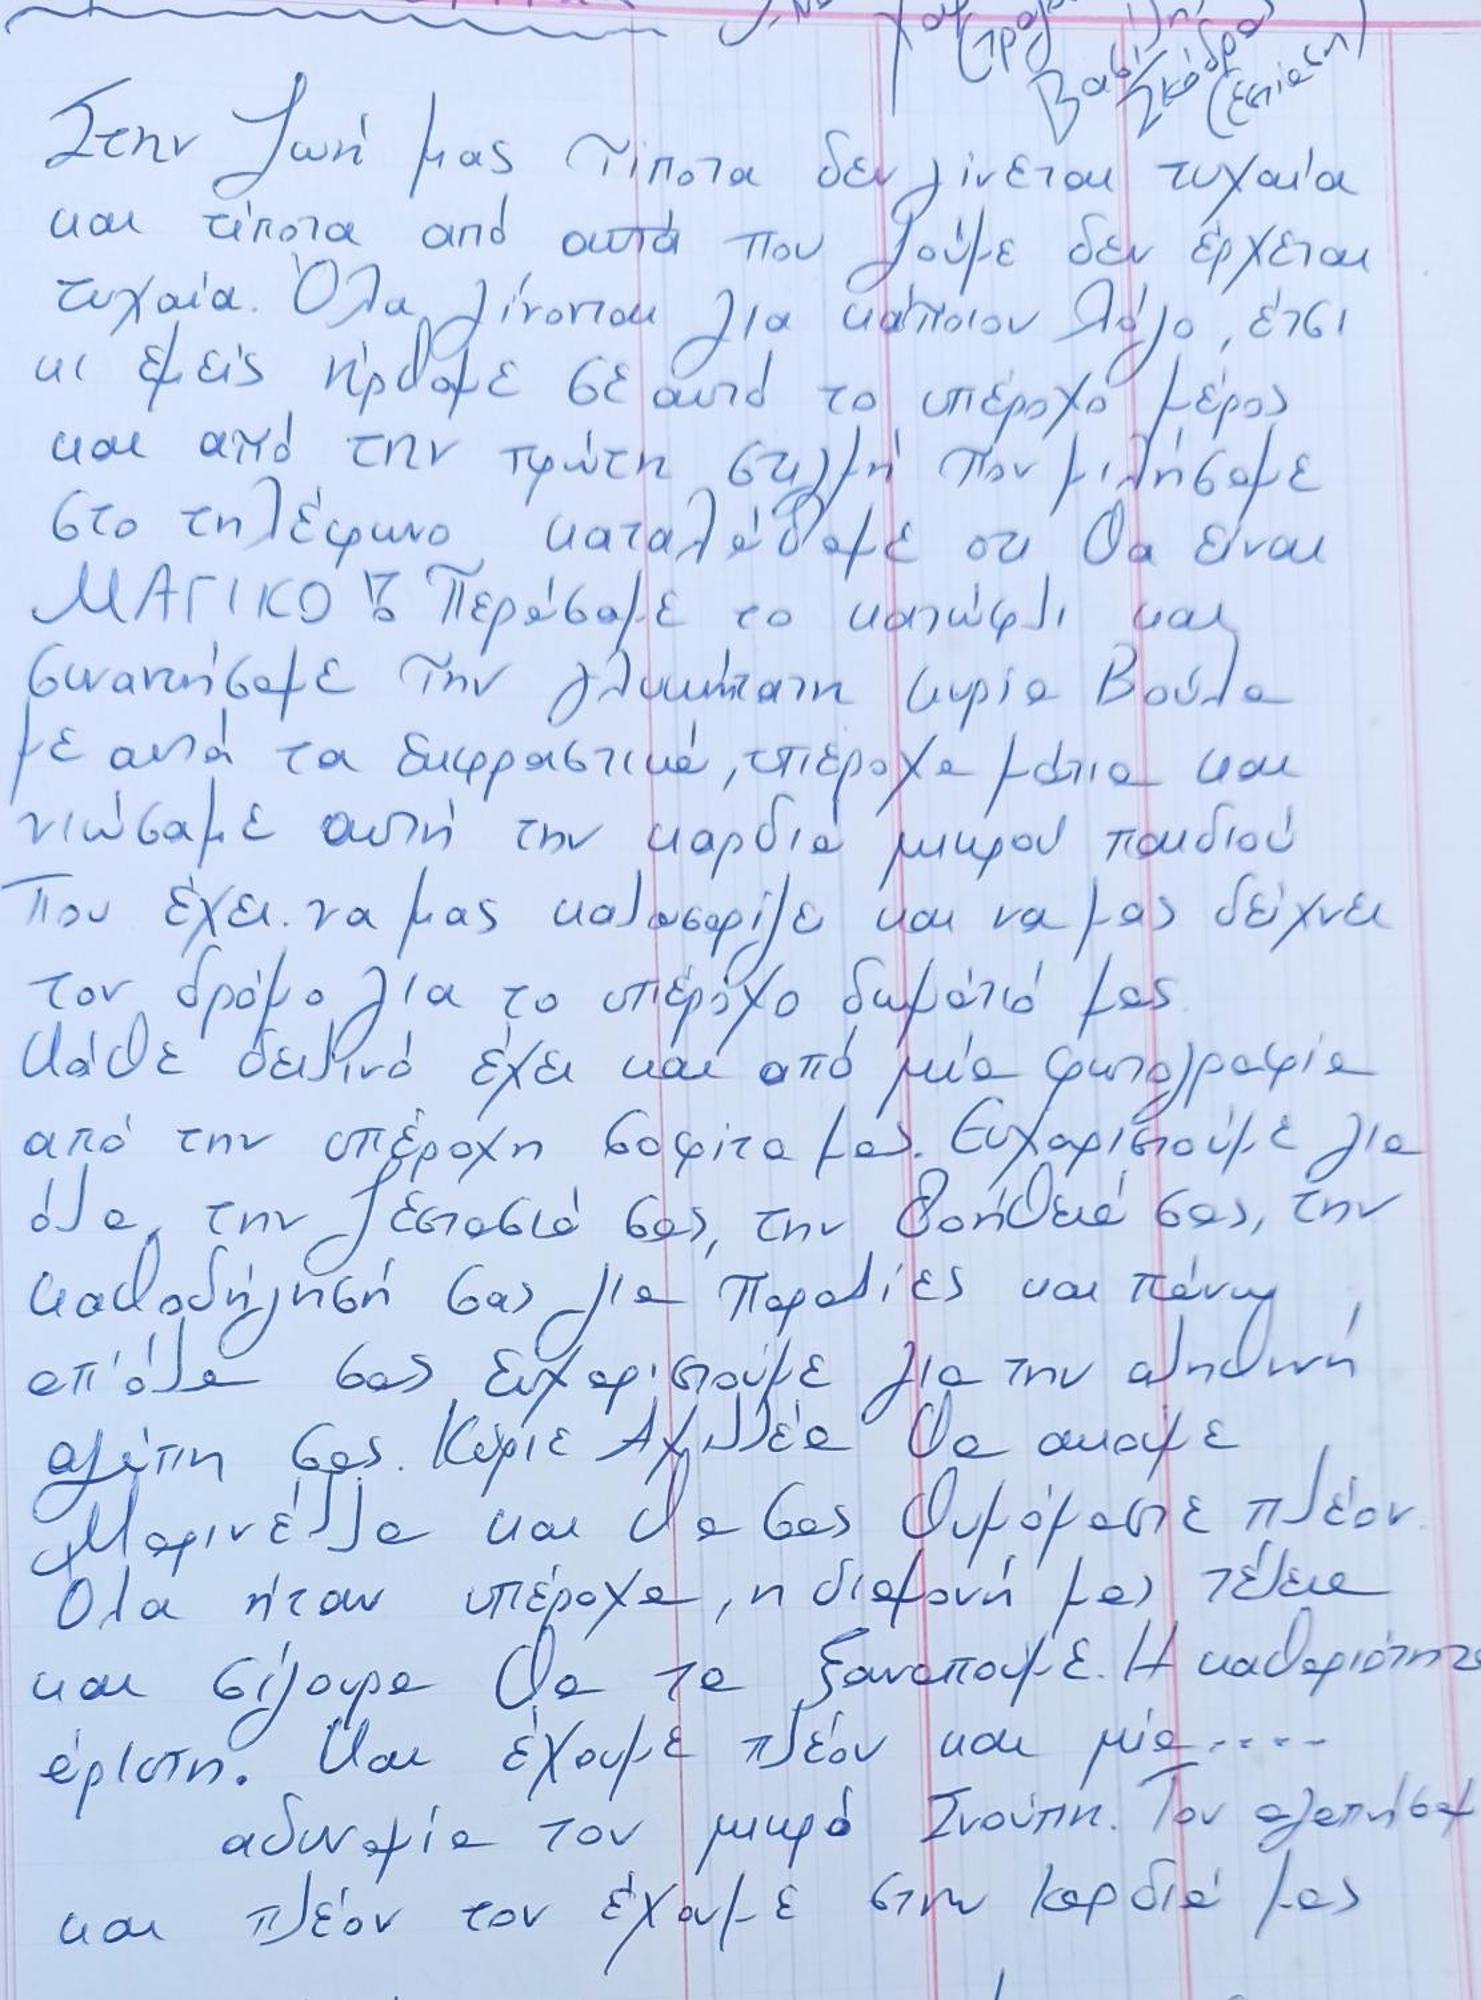 Στην ζωή μας τίποτα δεν γίνεται τυχαία
και τίποτα από αυτά που ζούμε δεν έρχεται
τυχαία. Όλα γίνονται για κάποιον λόγο, έτσι
κι εμείς ήρθαμε σε αυτό το υπέροχο μέρος
και από την πρώτη στιγμή που μιλήσαμε
στο τηλέφωνο καταλάβαμε οτι θα είναι
ΜΑΓΙΚΟ!! Περάσαμε το κατώφλι και
συναντήσαμε την γλυκύτατη κυρία Βούλα
με αυτά τα εκφραστικά, υπέροχα μάτια και
νιώσαμε αυτή την καρδιά μικρού παιδιού
που έχει να μας καλοσορίζε και να μας δείχνει
τον δρόμο για το υπέροχο δωμάτιό μας.
Κάθε δειλινό έχει και από μία φωτογραφία
από την υπέροχη σοφίτα μας. Ευχαριστούμε για
όλα, την ζεστασιά σας, την βοήθειά σας, την
καθοδήγησή σας για παραλίες και πάνω
απ'όλα σας ευχαριστούμε για την αληθινή
αγάπη σας. Κύριε Αχιλλέα θα ακούμε
Μαρινέλλα και θα σας θυμόμαστε πλέον.
Όλα ήταν υπέροχα, η διαμονή μας τέλεια
και σίγουρα θα τα ξαναπούμε. Η καθαριότητα
άριστη. Και έχουμε πλέον και μία....
αδυναμία τον μικρό Σνούπη. Τον αγαπήσαμ
και πλέον τον έχουμε στην καρδιά μας